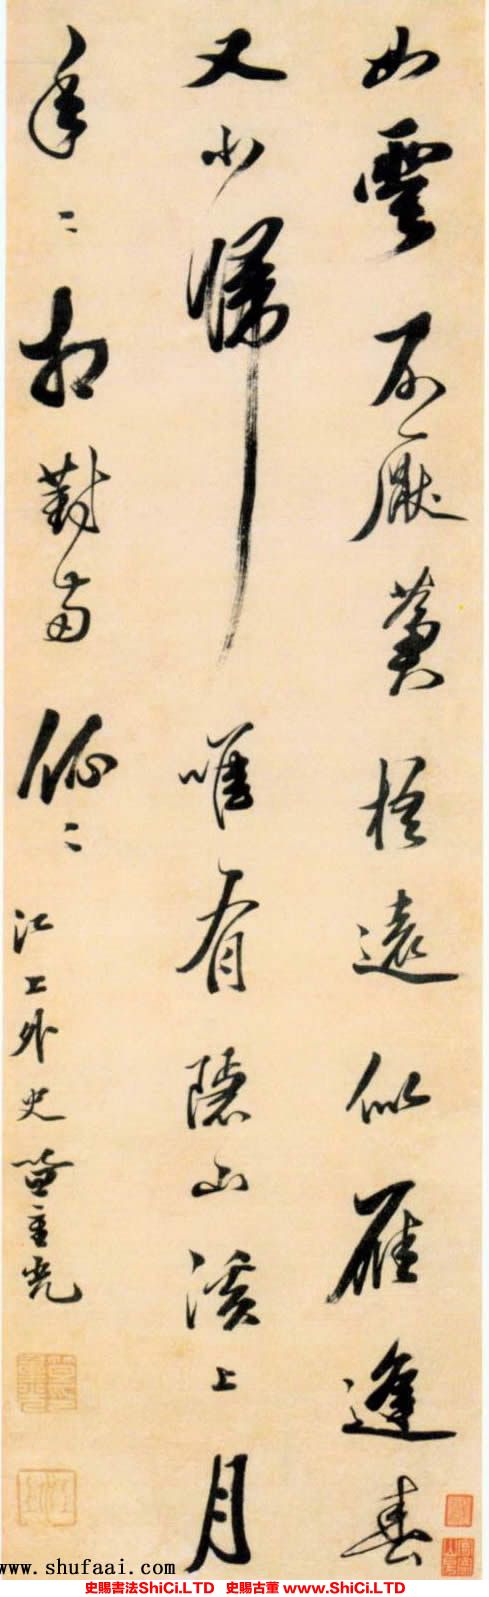 如雲不厭蒼梧遠似雁逢春
又北歸唯有隱山溪上月
年〻相對兩依〻
江上外史笪重光
www.shufaai.com
史賜書法ShiCi.LTD 史賜古董 www.ShiCi.LTD